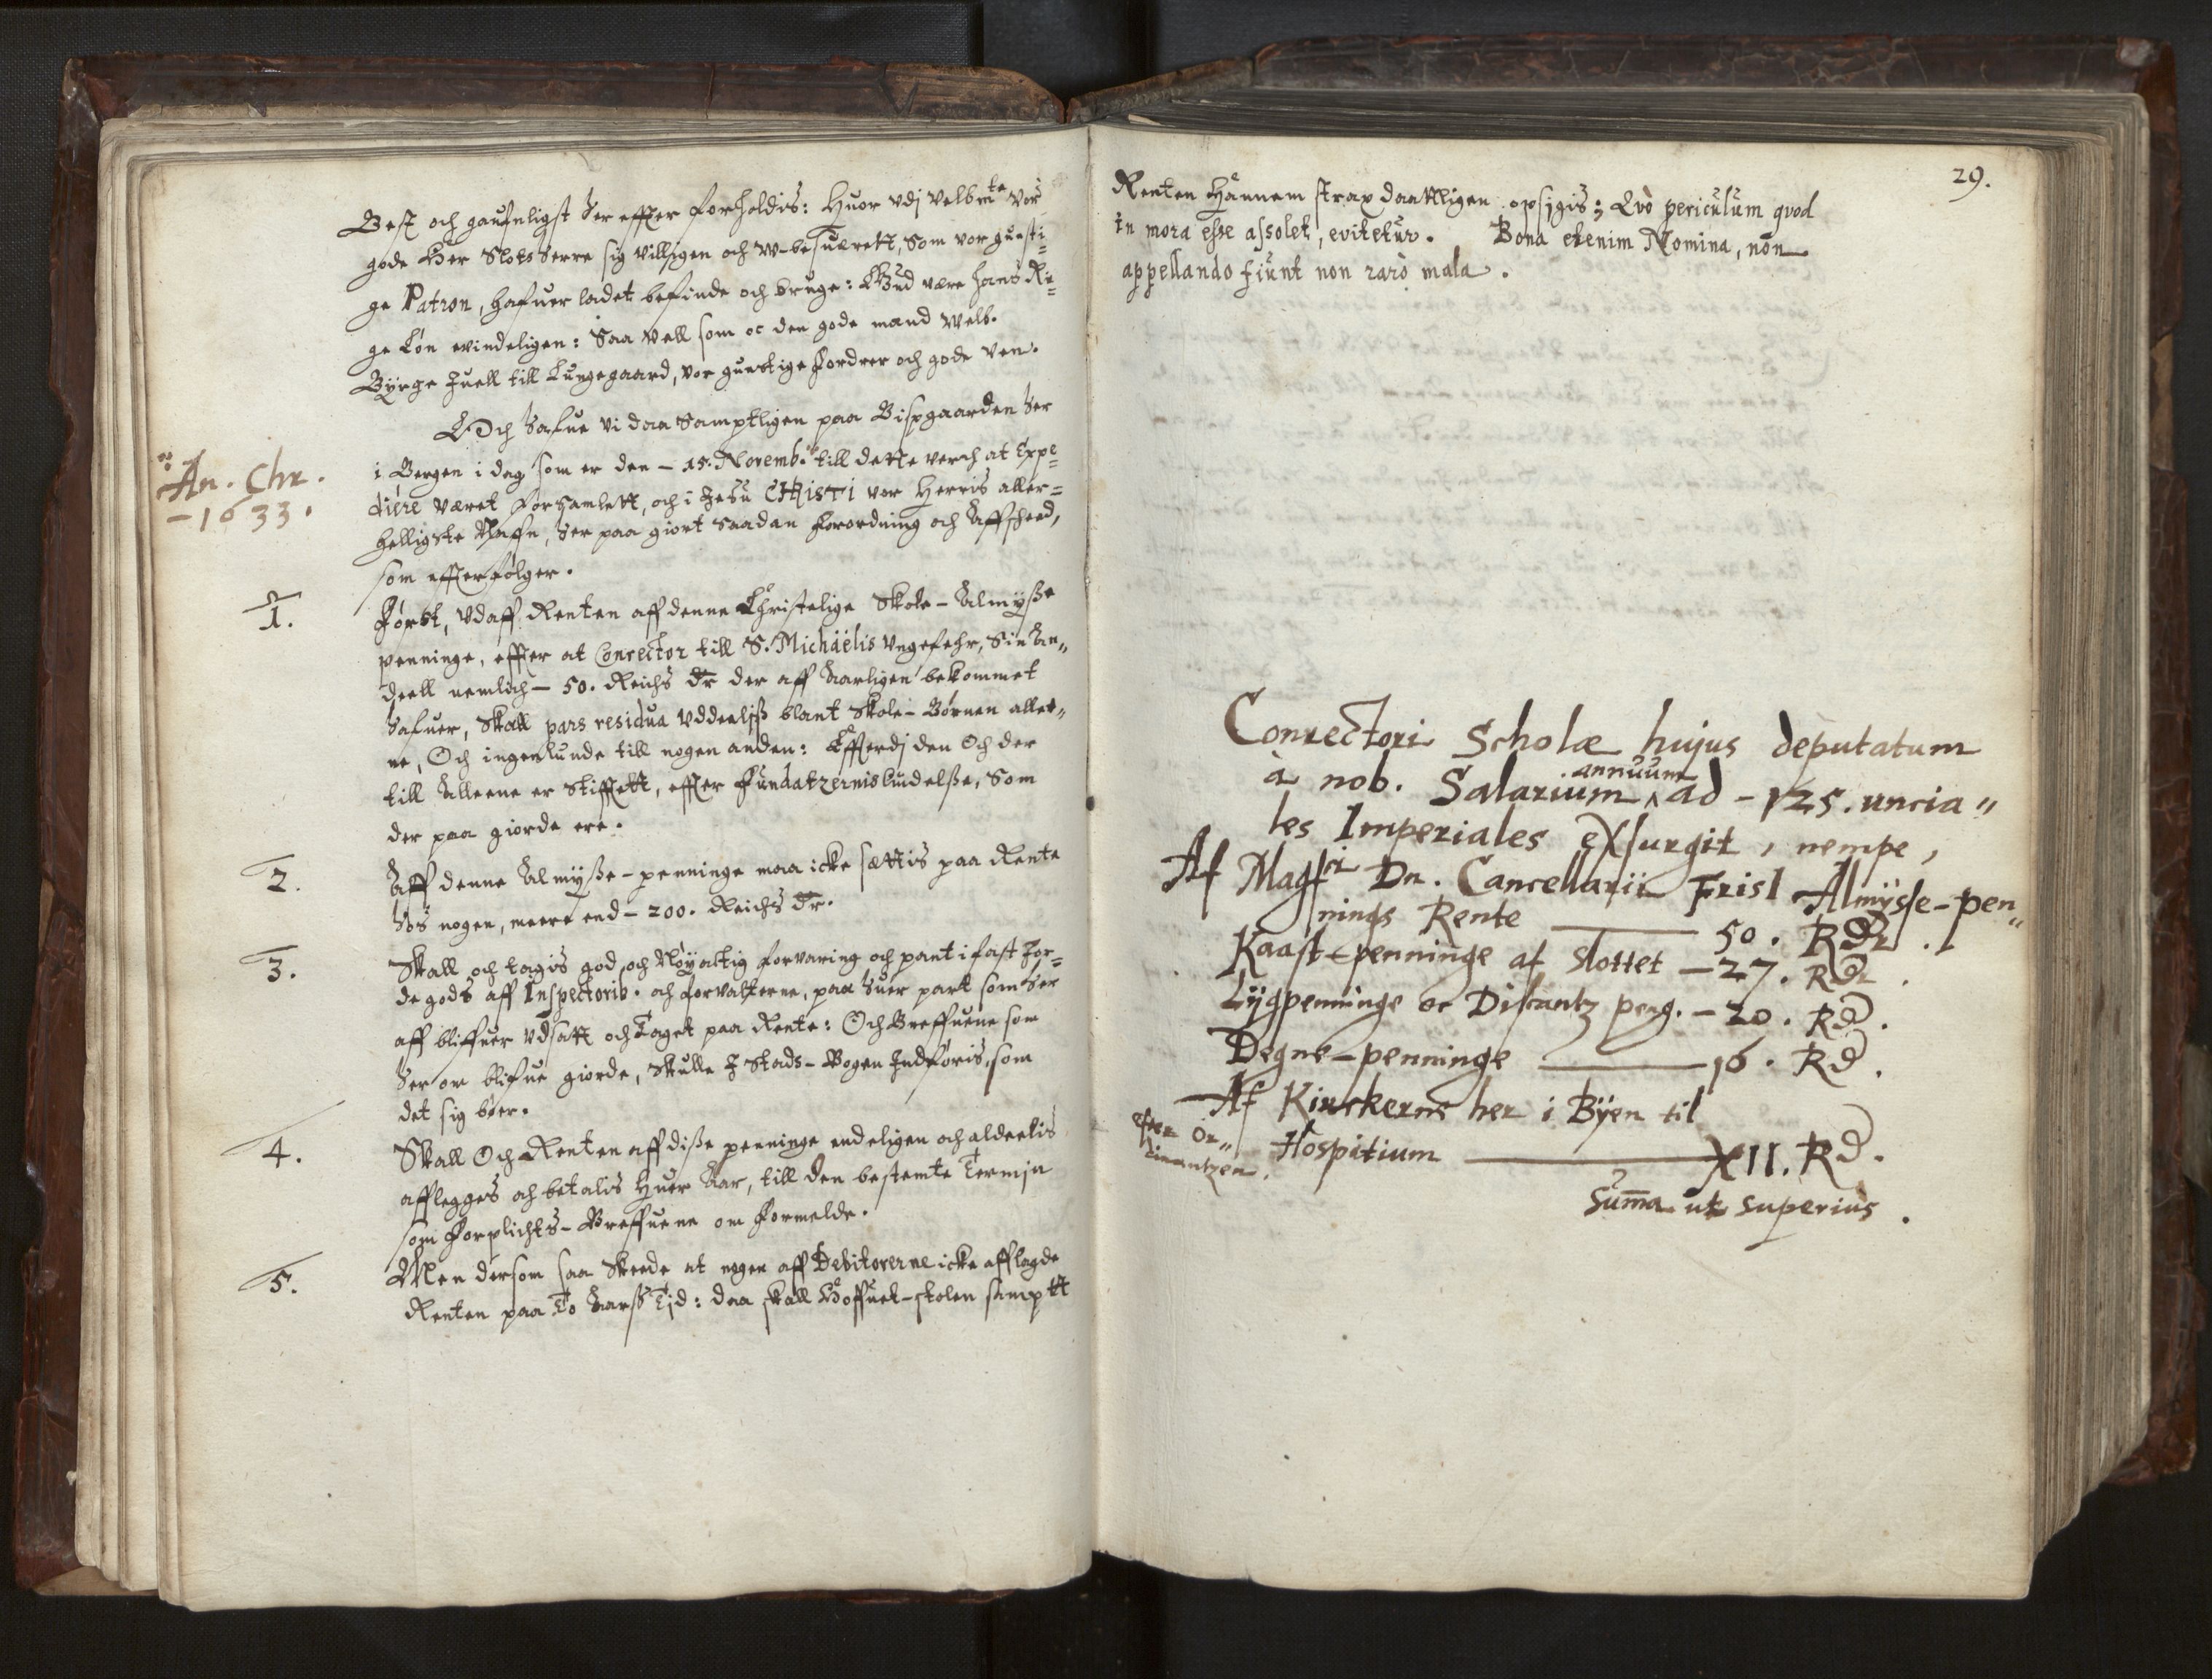 Best och gaufnligst her effter forholdis: Huor vdj velb mte vor
gode Her Slotsherre sig villigen och w-besuærett, som vor gunsti=
ge Patron, hafuer ladet befinde och bruge: Gud være hans Ri=
ge Løn evindeligen: Saa vell som oc den gode mand Welb.
Byrge Juell till Lungegaard, vor gunstige Fordrer och gode Ven.
Och hafue vi daa samptligen paa Bispgaarden her
An. Chr.
- 1633.
i Bergen i dag som er den - 15. Novemb. till dette verch at Expe=
diere været forsamlett, och i Jesu CHRisTi vor Herris aller=
helligste Nafn, her paa giort saadan Forordning och Affskeed,
som effterfølger.
1.
Først, vdaff Renten aff denne Christelige Skole-Almysse
penninge, effter at Conrector till S. Michaëlis vngefehr, sin An„
deell nemlich - 50. Reichs dr der aff Aarligen bekommet
hafuer, skall pars residua vddeeliss blant Skole-Børnen aller„
ne, Och ingenlunde till nogen anden: Effterdj den Och der
till Alleene er Stifftett, effter Fundatzernis liudelsse, som
der paa giorde ere.
2.
Aff denne Almysse-penninge maa icke sættis paa Rente
hos nogen, meere end - 200. Reichs dr.
3.
Skall och tagis god och Nøyactig forvaring och pant i fast Jor=
de gods aff Inspectorib. och forvalterne, paa huer part som her
aff bliffuer vdsatt och Taget paa Rente: Och Breffuene som
her om blifue giorde, skulle J Stads-Bogen Indføris, som
det sig bøer.
4.
Skall Och Renten aff disse penninge endeligen och aldeelis
afflegges och betalis huer Aar, till den bestemte Termjn
som Forplichts-Breffuene om formelder.
5.
Men dersom saa skeede at nogen aff Debitorerne icke afflagde
Renten paa To Aarss Tjd: daa skall Hoffuet-stolen samptt
29.
Renten hannem strax daattligen opsigis; Qvò periculum qvod
in mora esse assolet, evitetur. Bona etenim Nomina, non
appellando fiunt non rarò mala.
Conrectori Scholæ hujus deputatum
à nob. Salarium annuum ad - 125. uncia„
les Imperiales exsurgit, nempe,
Af Magfci Dn. Cancellarii Friss Almysse-pen„
nings Rente 50. Rdr.
Kaast-penninge af slottet - 27. Rdr.
Lygpenninge oc Discantz peng. - 20. Rd.
Degne-penninge 16. Rd.
Af Kirckerne her i Byen til
efter Or„
dinantzen.
Hospitium XII. Rd.
Suma ut superius.